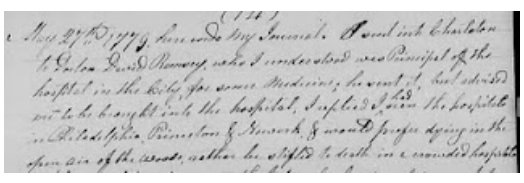 (121)
May 27th, 1779, here ends my Journal. I sent into Charleston
to Doctor David Ramsey, who I understood was Principal of the
hospital in the City, for some Medicine; he sent it, but advised
me to be brought into the hospital, I replied I had seen the hospitals
in Philadelphia, Princeton & Newark, & would prefer dying in the
open air of the woods, rather be stifled to death in a crowded hospital